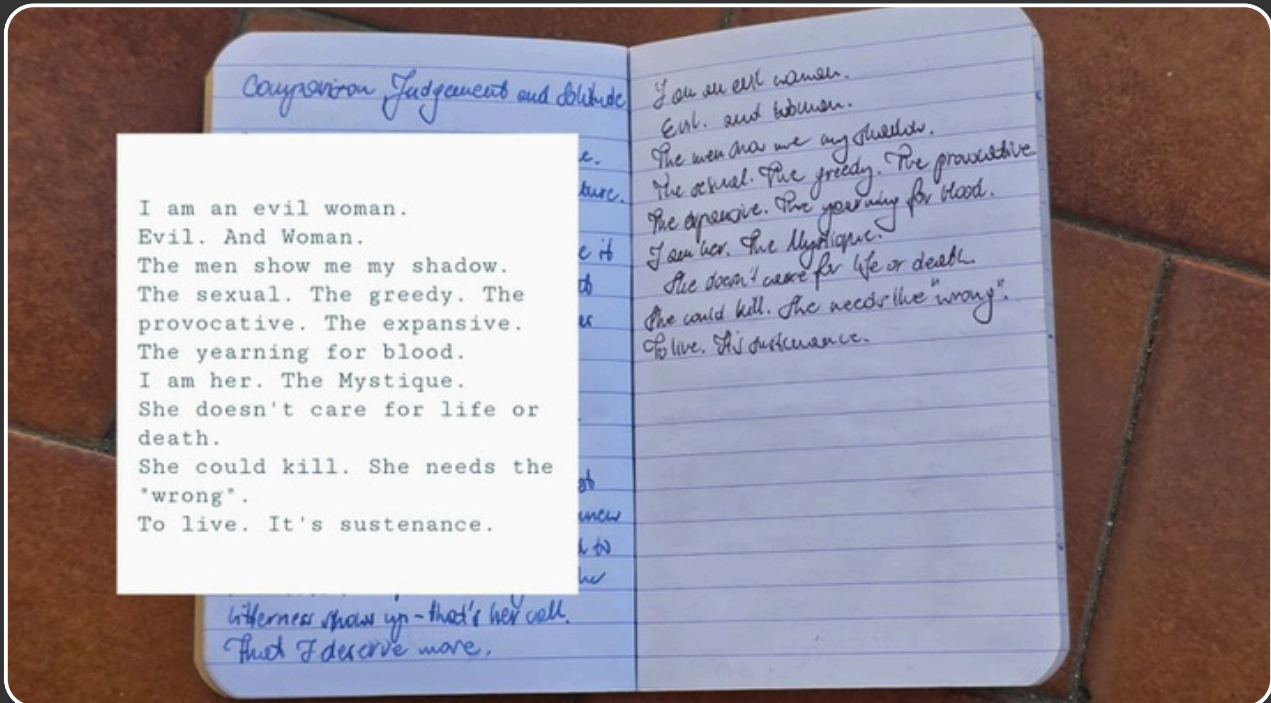 Comparison Judgement and Solitude
e.
ture.
e it
I am an evil woman.
Evil. And Woman.
The men show me my shadow.
The sexual. The greedy. The
provocative. The expansive.
The yearning for blood.
I am her. The Mystique.
She doesn't care for life or
death.
She could kill. She needs the
"wrong".
To live. It's sustenance.
to
bitterness shows up - that's her call.
That I deserve more.
I am an evil woman.
Evil. and Woman.
The men show me my shadow.
The sexual. The greedy. The provocative
The expansive. The yearning for blood.
I am her. The Mystique.
She doesn't care for life or death.
She could kill. She needs the "wrong".
To live. It's sustenance.